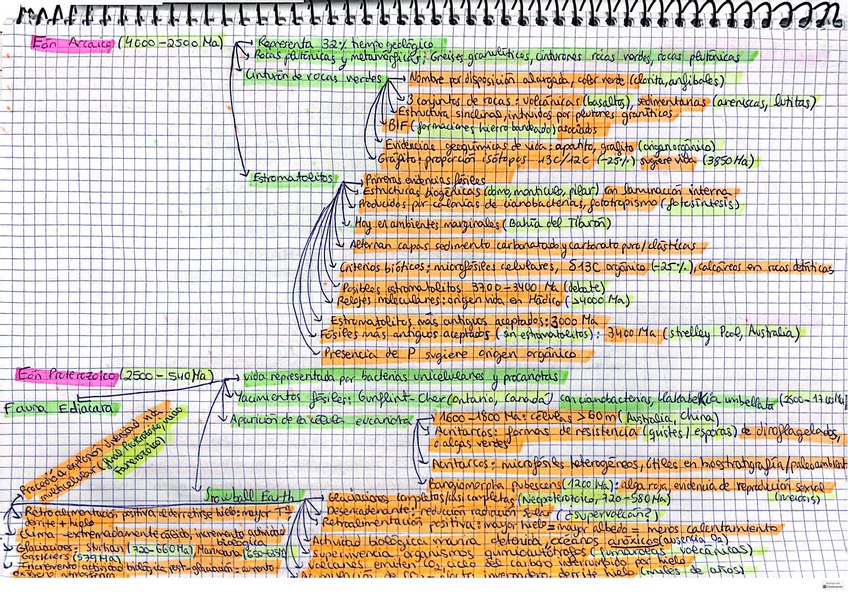 Eón Arcaico (4000-2500 Ma)
Representa 32% tiempo geológico
Rocas plutónicas y metamórficas: Gneises granulíticos, cinturones rocas verdes, rocas plutónicas
Cinturón de rocas verdes
Nombre por disposición alargada, color verde (clorita, anfíboles)
3 conjuntos de rocas: volcánicas (basaltos), sedimentarias (areniscas, lutitas)
Estructura sinclinal, intruidos por plutones graníticos
BIF (formaciones hierro bandeado) asociados
Evidencias geoquímicas de vida: apatito, grafito (origen orgánico)
Grafito: proporción isótopos 13C/12C (-25%) sugiere vida (3850Ma)
Estromatolitos
Primeras evidencias fósiles
Estructuras biogénicas (domo, montículo, pilar) con laminación interna
Producidos por colonias de cianobacterias, fototropismo (fotosíntesis)
Hoy en ambientes marginales (Bahía del Tiburón)
Alternan capas sedimento carbonatado y carbonato puro/clásticos
Criterios bióticos: microfósiles celulares, δ13C orgánico (-25%), calcáreos en rocas detríticas
Posibles estromatolitos 3700-3400 Ma (debate)
Relojes moleculares: origen vida en Hádico (>4000 Ma)
Estromatolitos más antiguos aceptados: 3000 Ma
Fósiles más antiguos aceptados (sin estromatolitos): 3400 Ma (Strelley Pool, Australia)
Presencia de P sugiere origen orgánico
Eón Proterozoico (2500-540Ma)
vida representada por bacterias unicelulares y procariotas
Yacimientos fósiles: Gunflint-Cher (Ontario, Canadá) con cianobacterias, Kakabekia umbellata (2500-1700Ma)
Fauna Ediacara
Aparición de la célula eucariota
1600-1800 Ma: células >60m (Australia, China)
Acritarcos: formas de resistencia (quistes/esporas) de dinoflagelados,
o algas verdes
Acritarcos: microfósiles heterogéneos, útiles en bioestratigrafía/paleoambient
Bangiomorpha pubescens (1200Ma): alga roja, evidencia de reproducción sexual
(meiosis)
Precedió a explosión diversidad vida
multicelular (final Proterozoico, inicio
Fanerozoico)
Snowball Earth
Glaciaciones completas/casi completas (Neoproterozoico, 720-580Ma)
Desencadenante: reducción radiación solar (¿Supervolcán?)
Retroalimentación positiva: mayor hielo = mayor albedo = menos calentamiento
Actividad biológica marina detenida, océanos anóxicos (ausencia O2)
Supervivencia organismos quimioautótrofos (fumarolas volcánicas)
Volcanes emiten CO2, ciclo del carbono interrumpido por hielo
Acumulación de CO2
derrite hielo (miles de años)
Retroalimentación
hielo: mayor Tª
derrite + hielo
Clima extremadamente cálido, incremento actividad
biológica
Glaciaciones: Sturtian (720-660Ma) Marinoana
Gaskiers (579Ma)
Incremento actividad biológica post-glaciación: aumento
oxígeno atmosférico